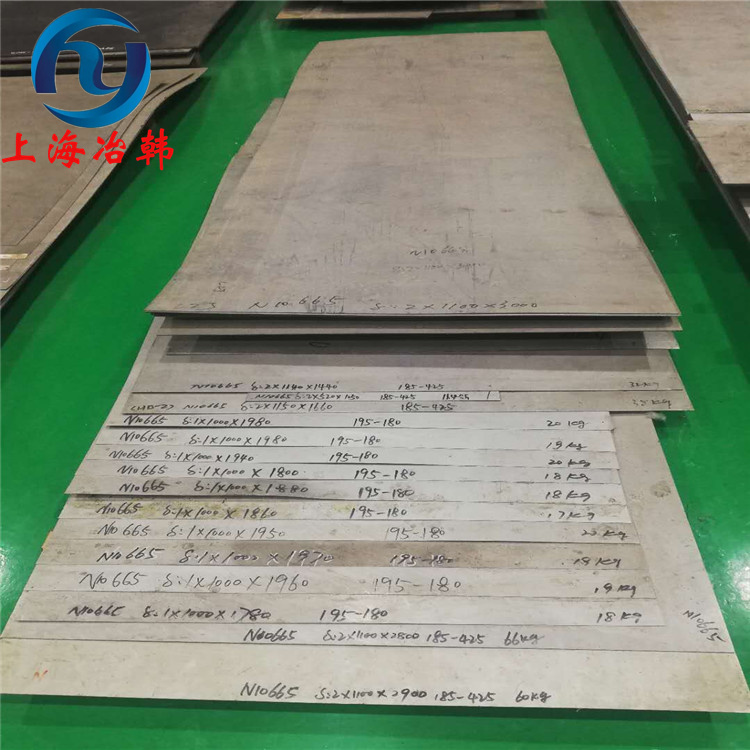 上海冶韩
N10665
N10665 δ:2×1100×3000
N10665 δ:2×1140×1440 185-425 32kg
N10665 δ:2×520×1150 185-425
N10665 δ:2×1150×1660 185-425 35kg
N10665 δ:1×1000×1980 195-180 20kg
N10665 δ:1×1000×1980 195-180 19kg
N10665 δ:1×1000×1940 195-180 20kg
N10665 δ:1×1000×1800 195-180 18kg
N10665 δ:1×1000×1880 195-180 18kg
N10665 δ:1×1000×1860 195-180 17kg
N10665 δ:1×1000×1950 195-180 22kg
N10665 δ:1×1000×1970 195-180 19kg
N10665 δ:1×1000×1960 195-180 19kg
N10665 δ:1×1000×1780 195-180 18kg
N10665
N10665 δ:2×1100×2800 185-425 66kg
N10665 δ:2×1100×2900 185-425 60kg